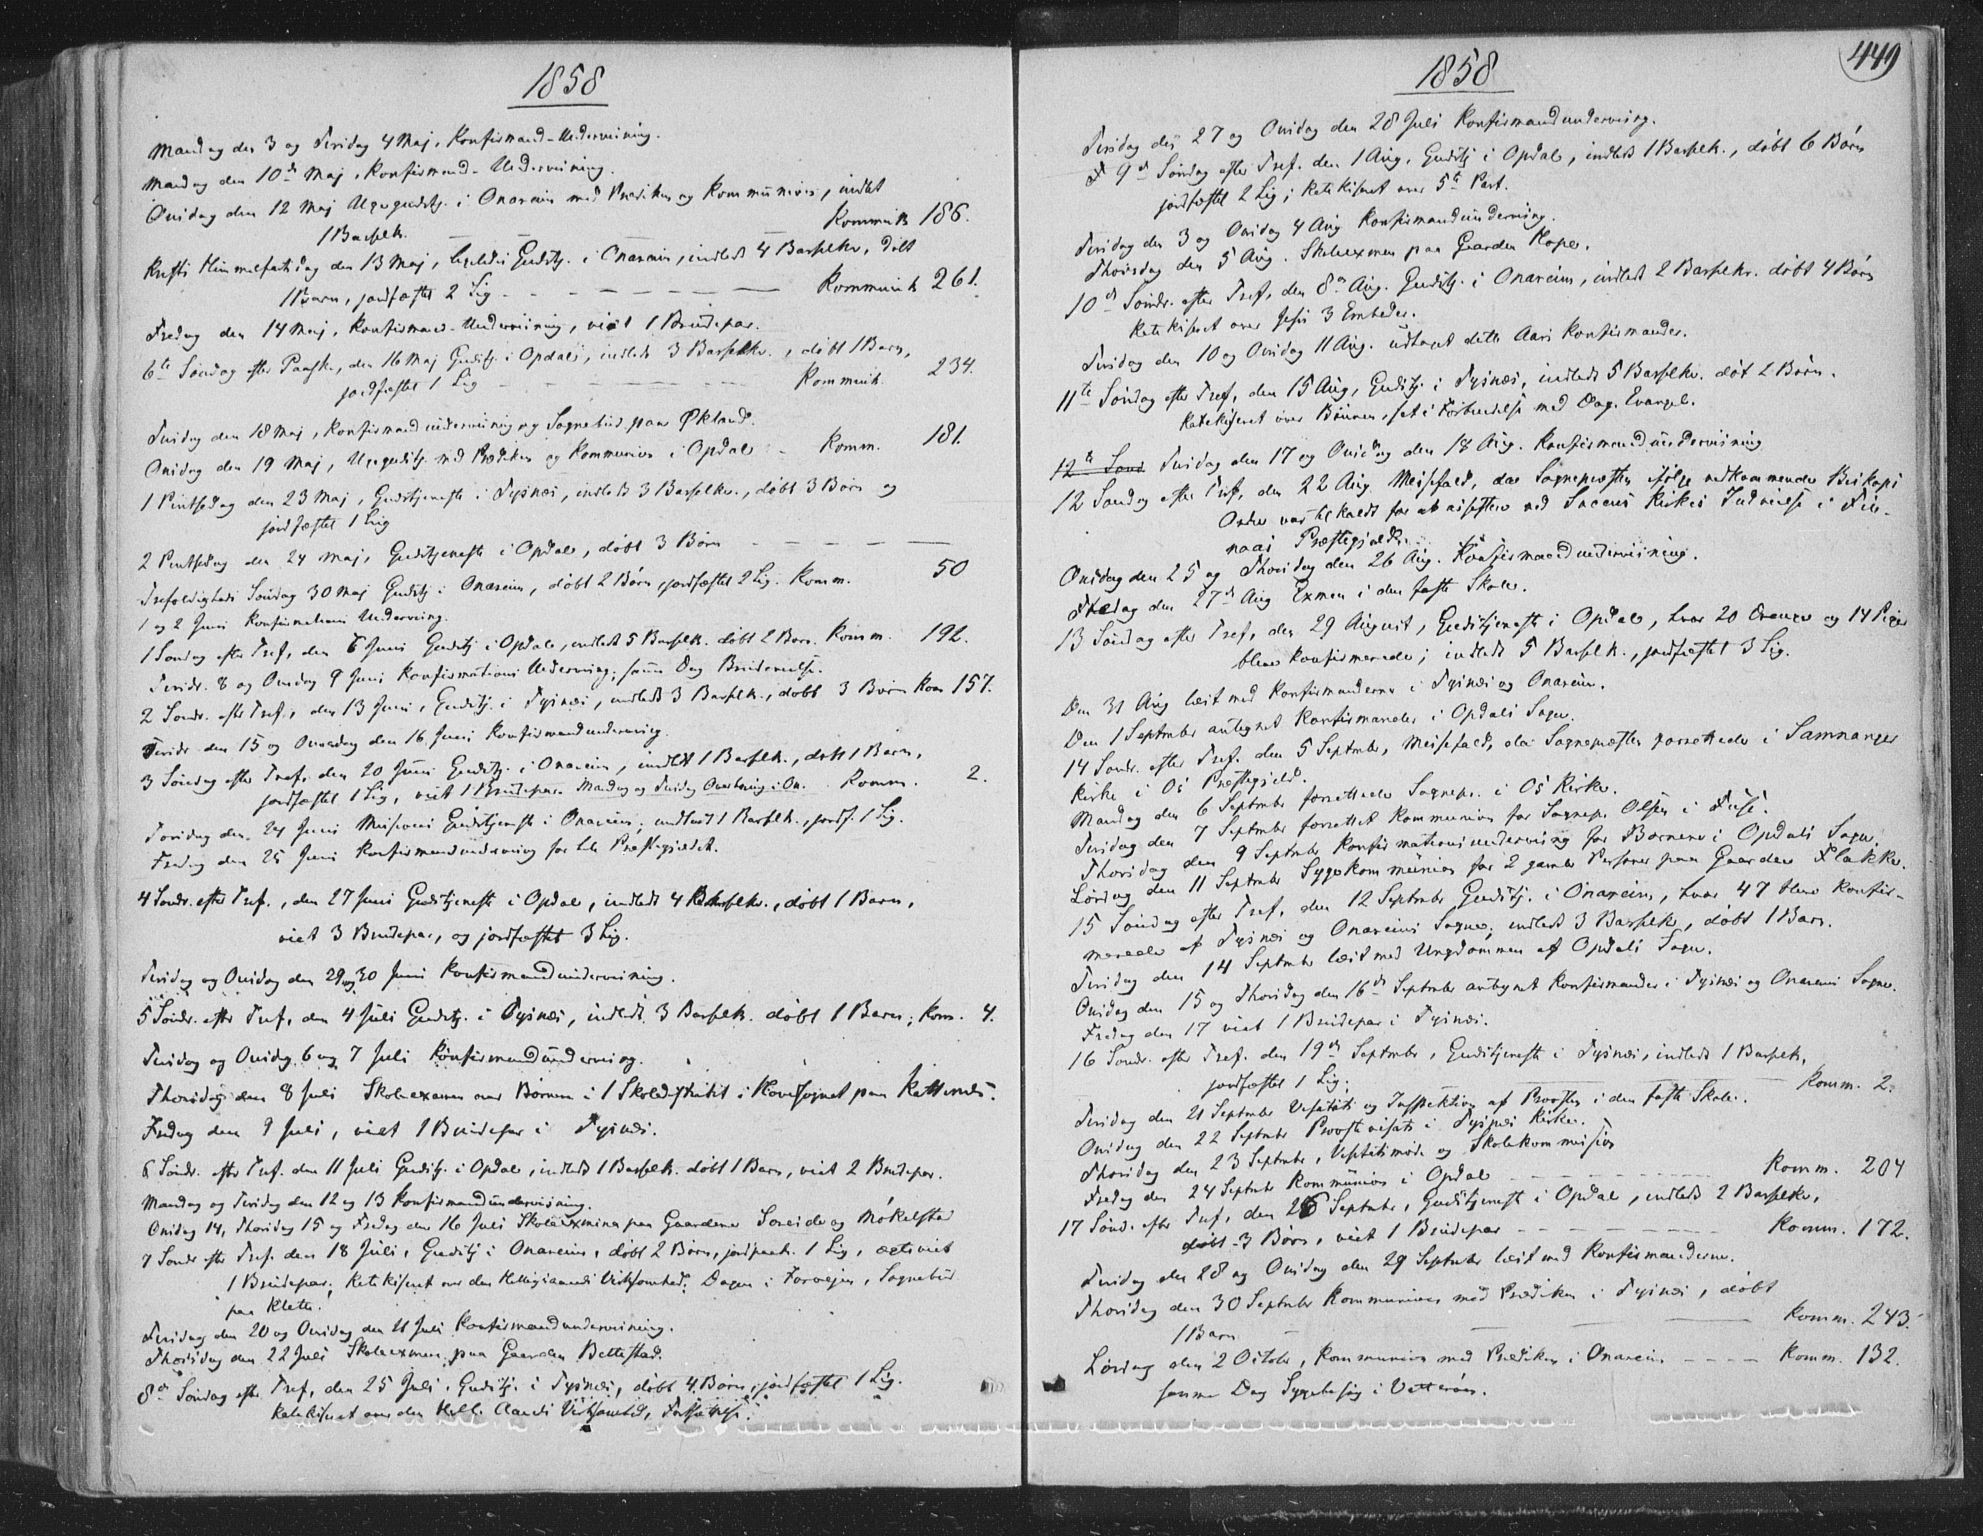 1858
Mandag den 3 og Tirsdag 4 Maj, Konfirmand-Underviisning.
Mandag den 10de Maj, Konfirmand-Underviisning.
Onsdag den 12 Maj Ugegudstj. i Onareim med Prædiken og Kommunion, indledt
1 Barselk. — — — — — Kommunik 186.
Kristi Himmelfartsdag den 13 Maj, Gudstj. i Onareim, indledt 4 Barselkv., døbt
1 Barn, jordfæstet 2 Lig — — — — — Kommunik 261.
Fredag den 14 Maj, Konfirmand-Underviisning, viet 1 Brudepar.
6te Søndag efter Paaske, den 16 Maj Gudstj. i Opdal, indledt 3 Barselkv., døbt 1 Barn,
jordfæstet 1 Lig — — — — — Kommunik. 234.
Tirsdag den 18 Maj, Konfirmandunderviisning og Sognebud paa Økland.
Onsdag den 19 Maj, Ugegudstj. med Prædiken og Kommunion i Opdal - Komm. 181.
1 Pintsedag den 23 Maj, Gudstjeneste i Tysnæs, indledt 3 Barselkv., døbt 3 Børn og
jordfæstet 1 Lig
2 Pintsedag den 24 Maj, Gudstjeneste i Opdal, døbt 3 Børn — — — — —
Trefoldigheds Søndag 30 Maj Gudstj i Onareim, døbt 2 Børn, jordfæstet 2 Lig. Komm. 50
1 og 2 Juni Konfirmations Underviisng.
1 Søndag efter Tref, den 6 Juni Gudstj i Opdal, indledt 5 Barselk. døbt 2 Børn. Komm. 192.
Tirsd. 8 og Onsdag 9 Juni Konfirmations Underviisng; samme Dag Brudevielse.
2 Sønd. efter Tref., den 13 Juni, Gudstj. i Tysnæs, indledt 3 Barselk., døbt 3 Børn Kom 157.
Tirsd. den 15 og Onsdag den 16 Juni Konfirmandunderviisng.
3 Søndag efter Tref., den 20 Juni Gudstj. i Onareim, indledt 1 Barselk., døbt 1 Barn,
jordfæstet 1 Lig, viet 1 Brudepar. Mandag og Tirsdag i On. Komm. 2.
Torsdag den 24 Juni Missions Gudstjeneste i Onareim; indledt 1 Barselk., jordf. 1 Lig.
Fredag den 25 Juni Konfirmandunderviisning for hele Præstegjeldet.
4 Sønd. efter Tref., den 27 Juni Gudstjeneste i Opdal, indledt 4 Barselkv., døbt 1 Barn,
viet 3 Brudepar, og jordfæstet 3 Lig.
Tirsdag og Onsdag den 29 og 30 Juni Konfirmandunderviisning.
5 Sønd. efter Tref, den 4 Juli Gudstj. i Tysnæs, indledt 3 Barselk. døbt 1 Barn; Kom. 4.
Tirsdag og Onsdag 6 og 7 Juli Konfirmandunderviisng.
Thorsdag den 8 Juli Skoleexamen over Børnene i 1 Skoledistrikt i Hovedsognet paa Kattenæs.
Fredag den 9 Juli, viet 1 Brudepar i Tysnæs.
6 Sønd. efter Tref. den 11 Juli Gudstj. i Opdal, indledt 1 Barselk. døbt 1 Barn, viet 2 Brudepar.
Mandag og Tirsdag den 12 og 13 Konfirmandunderviisning.
Onsdag 14, Thorsdag 15 og Fredag den 16 Juli Skoleexamina paa Gaardene Soreide og Møkelstad
7 Sønd efter Tref. den 18 Juli, Gudstj i Onareim, døbt 2 Børn, jordpaak. 1 Lig, ægteviet
1 Brudepar; Katekiseret over den Helligaands Virksomhed; Dagen i Forvejen, Sognebud
paa Kleto.
Tirsdag den 20 og Onsdag den 21 Juli Konfirmandunderviisning.
Thorsdag den 22 Juli Skoleexamen paa Gaarden Bellestad.
8de Søndag efter Tref, den 25 Juli. Gudstj. i Tysnæs, døbt 4 Børn, jordfæstet 1 Lig.
katekiseret over den Hell. Aands Virksomhed, Fortsættelse.
449
1858
Tirsdag den 27 og Onsdag den 28 Juli Konfirmandunderviisng.
9de Søndag efter Tref. den 1 Aug. Gudstj i Opdal, indledt 1 Barselk., døbt 6 Børn
jordfæstet 2 Lig; katekiseret over 5te Part.
Tirsdag den 3 og Onsdag 4 Aug Konfirmandunderviisng.
Thorsdag den 5 Aug. Skoleexamen paa Gaarden Kope.
10de Sønd. efter Tref, den 8de Aug. Gudstj. i Onareim, indledt 2 Barselkv. døbt 4 Børn
Katekiseret over Jesu 3 Embeder.
Tirsdag den 10 og Onsdag 11 Aug. udtaget dette Aars Konfirmander.
11te Søndag efter Tref, den 15 Aug, Gudstj. i Tysnæs, indledt 5 Barselkv. døbt 2 Børn.
Katekiseret over Bønnen, sat i Forbindelse med Dag. Evangel.
12te Sønd. Tirsdag den 17 og Onsdag den 18 Aug. Konfirmandunderviisning
12 Søndag efter Tref, den 22 Aug Messefald, da Sognepræsten ifølge vedkommende Biskops
Ordre var tilkaldt for at assistere ved Kirkes Indvielse i Fin-
naas Præstegjeld.
Onsdag den 25 og Thorsdag den 26 Aug. Konfirmandunderviisning.
Fredag den 27de Aug Examen i den faste Skole.
13 Søndag efter Tref, den 29 August, Gudstjeneste i Opdal, hvor 20 Drenge og 14 Piger
bleve konfirmerede; indledt 5 Barselk., jordfæstet 3 Lig.
Den 31 Aug læst med Konfirmanderne i Tysnæs og Onareim.
Den 1 September antegnet Konfirmander i Opdals Sogn.
14 Sønd. efter Tref. den 5 September, Messefald, da Sognepræsten forrettede i Samnanger
Kirke i Os Præstegjeld.
Mandag den 6 September forrettede Sognepr. i Os Kirke.
Tirsdag den 7 September forrettet Kommunion for Sognepr. Olsen i Fuse.
Thorsdag den 9 September Konfirmationsunderviisng for Børnene i Opdals Sogn.
Lørdag den 11 September Sygekommunion for 2 gamle Personer paa Gaarden Flakke.
15 Søndag efter Tref, den 12 September, Gudstj. i Onareim, hvor 47 bleve konfir-
merede af Tysnæs og Onareims Sogne; indledt 3 Barselk, døbt 1 Barn.
Tirsdag den 14 September læst med Ungdommen af Opdals Sogn.
Onsdag den 15 og Thorsdag den 16de September antegnet Konfirmander i Tysnæs og Onareims Sogne.
Fredag den 17 viet 1 Brudepar i Tysnæs.
16 Sønd. efter Tref. den 19de September, Gudstjeneste i Tysnæs, indledt 1 Barselk,
jordfæstet 1 Lig. — — — Komm. 2.
Tirsdag den 21 September Visitats og Inspektion af Provsten i den faste Skole.
Onsdag den 22 September Provstevisats i Tysnæs Kirke.
Thorsdag den 23 September, Visitatsmøde og Skolekommission
Fredag den 24 September Kommunion i Opdal — — — — Komm. 204
17 Sønd. efter Tref, den 26 September, Gudstjeneste i Opdal, indledt 2 Barselkv,
døbt 3 Børn, viet 1 Brudepar — — — — — Komm. 172.
Tirsdag den 28 og Onsdag den 29 September læst med Konfirmanderne.
Thorsdag den 30 September Kommunion med Prædiken i Tysnæs, døbt
1 Barn — — — — Komm. 243.
Lørdag den 2 October, Kommunion med Prædiken i Onareim — — — Komm. 132.
samme Dag Sygebesøg i Vetteraas.